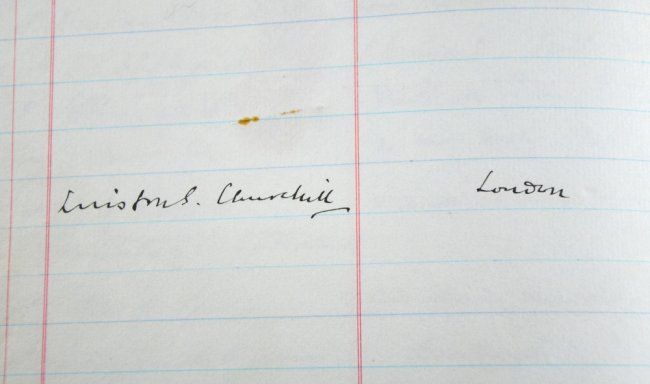 Winston S. Churchill London